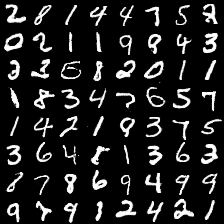 2 8 1 4 4 7 5 8
0 2 1 1 9 8 4 3
3 2 6 8 2 0 1 1
1 8 3 4 7 6 5 7
1 4 2 1 8 3 7 5
3 6 4 8 1 3 6 3
8 7 8 6 9 4 9 9
9 7 9 1 2 4 2 1